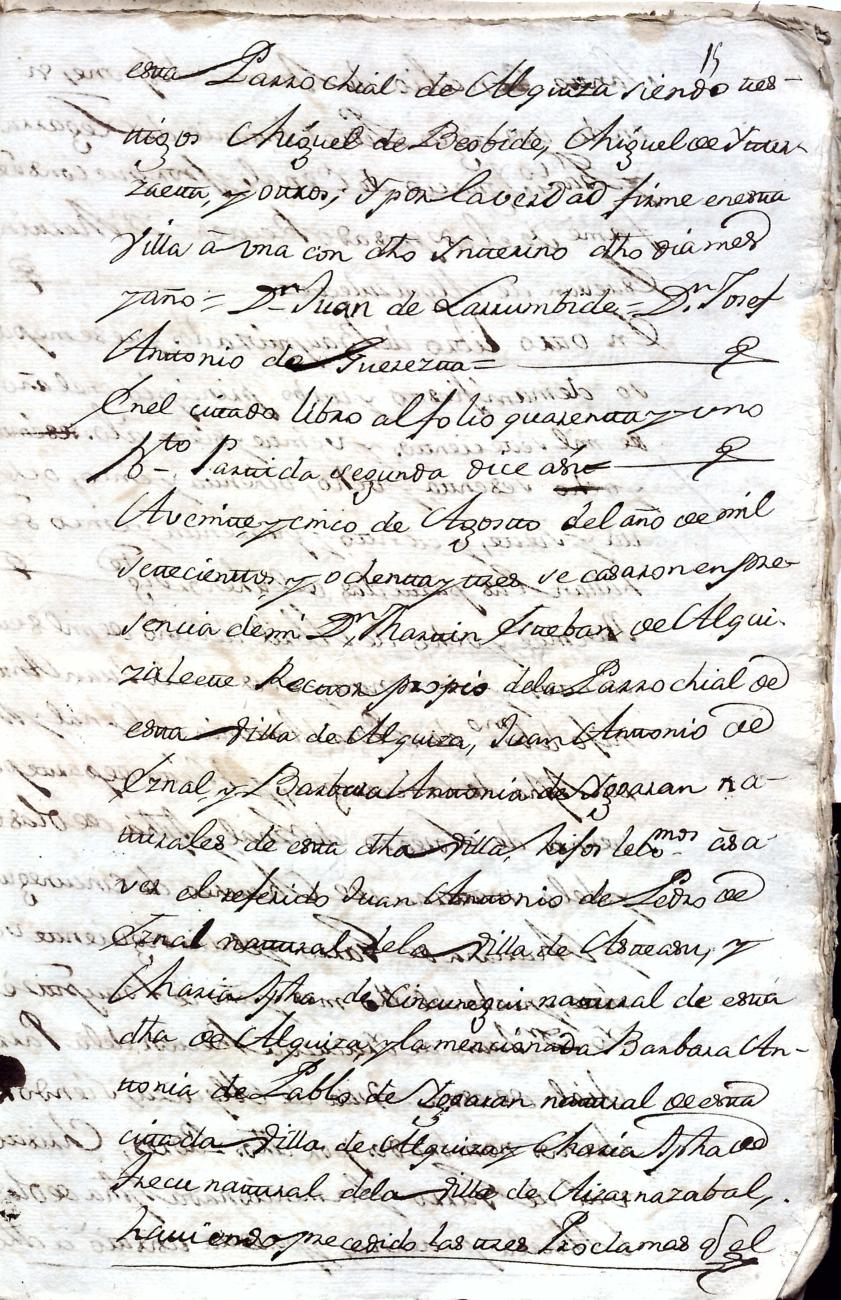 15
esta Parrochial de Alquiza siendo tes-
tigos Miguel de Beobide, Miguel de Yturr
zaeta, y otros; Y por la verdad firme en esta
Villa â una con dho Ynterino dho dia mes
y año = Dn Juan de Larrumbide = Dn Josef
Antonio de Guerezta =
En el citado libro al folio quarenta y uno
Bto Partida segunda dice asi =
A veinte y cinco de Agosto del año de mil
setecientos y ochenta y tres se casaron en pre-
sencia de mi Dn Martin Esteban de Alqui-
zalete Rector propio de la Parrochial de
esta Villa de Alquiza, Juan Antonio de
Eznal, y Barbara Antonia de Yrraran na-
turales de esta dha Villa, hijos legmos â sa-
ver el referido Juan Antonio de Pedro de
Eznal natural de la Villa de Asteasu, y
Maria Jpha de Cincunegui natural de esta
dha de Alquiza y la mencionada Barbara An-
tonia de Pablo de Yrraran natural de esta
citada Villa de Alquiza y Maria Jpha de
Yrecu natural de la Villa de Aizarnazabal,
haviendo precedido las tres Proclamas q el